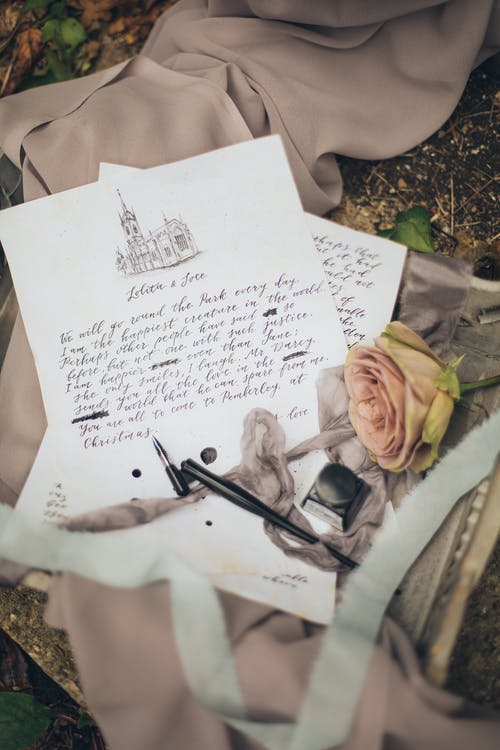 Lolita & Joee
We will go round the Park every day.
I am the happiest creature in the world.
Perhaps other people have said so
before, but not one with such justice.
I am happier even than Jane;
she only smiles, I laugh. Mr. Darcy
sends you all the love in the
world that he can spare from me.
You are all to come to Pemberley, at
Christmas.
love
perhaps